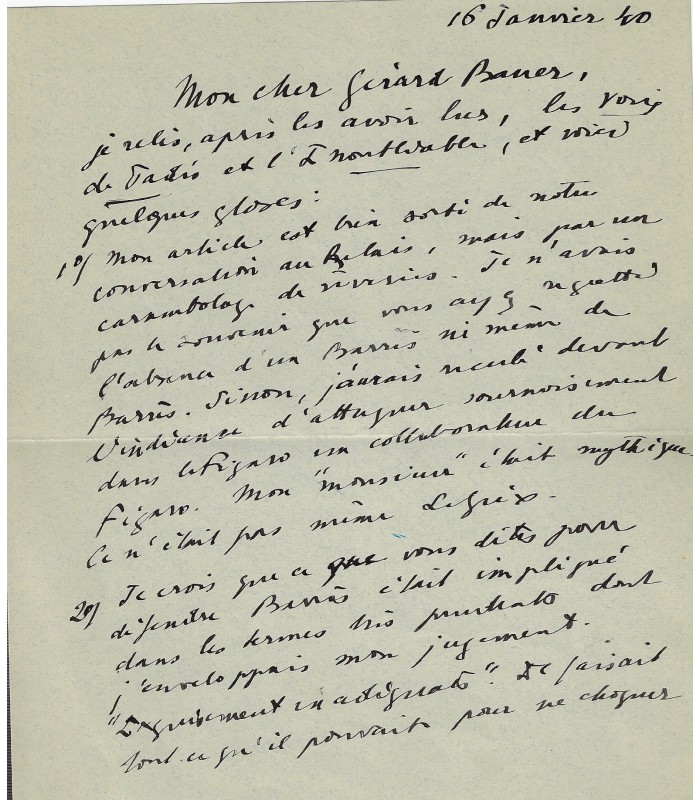 16 Janvier 40
Mon cher Gérard Bauer,
je relis, après les avoir lus, les voix
de Paris et l'Inoubliable, et voici
quelques gloses :
1°/ Mon article est bien sorti de notre
conversation au Relais, mais par un
carambolage de rêveries. Je n'avais
pas le souvenir que vous ayez regretté
l'absence d'un Barrès ni même de
Barrès. Sinon, j'aurais reculé devant
l'indécence d'attaquer sournoisement
dans le Figaro un collaborateur du
Figaro. Mon "monsieur" était mythique.
Ce n'était pas même
2°/ Je crois que ce que vous dites pour
défendre Barrès était impliqué
dans les termes très prudents dont
j'enveloppais mon jugement.
"Exquisement inadéquats". Il faisait
tout ce qu'il pouvait pour ne choquer